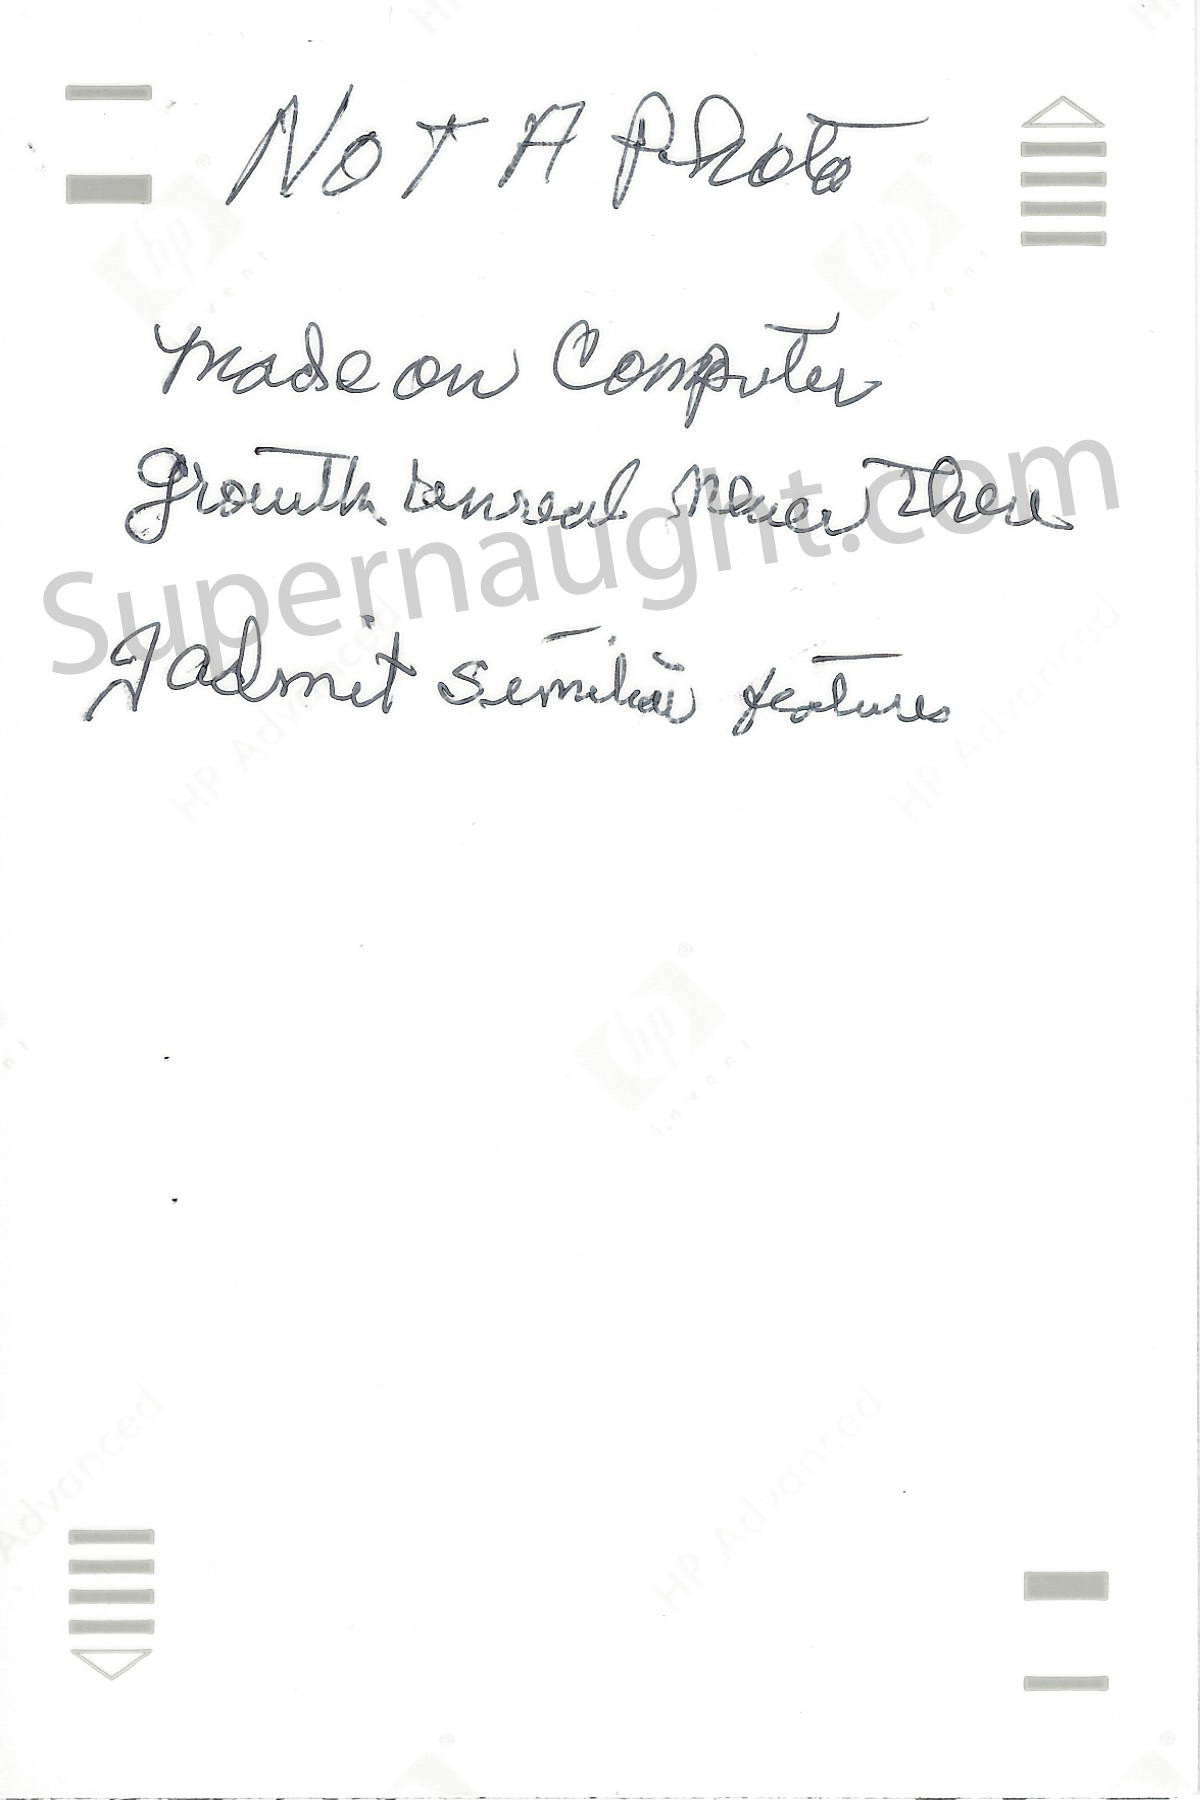 Not A Photo
made on Computer
growth unreal never there
I admit similiar features
Supernaught.com
hp
invent
HP Advanced
HP Advanced
hp
invent
HP Advanced
HP Advanced